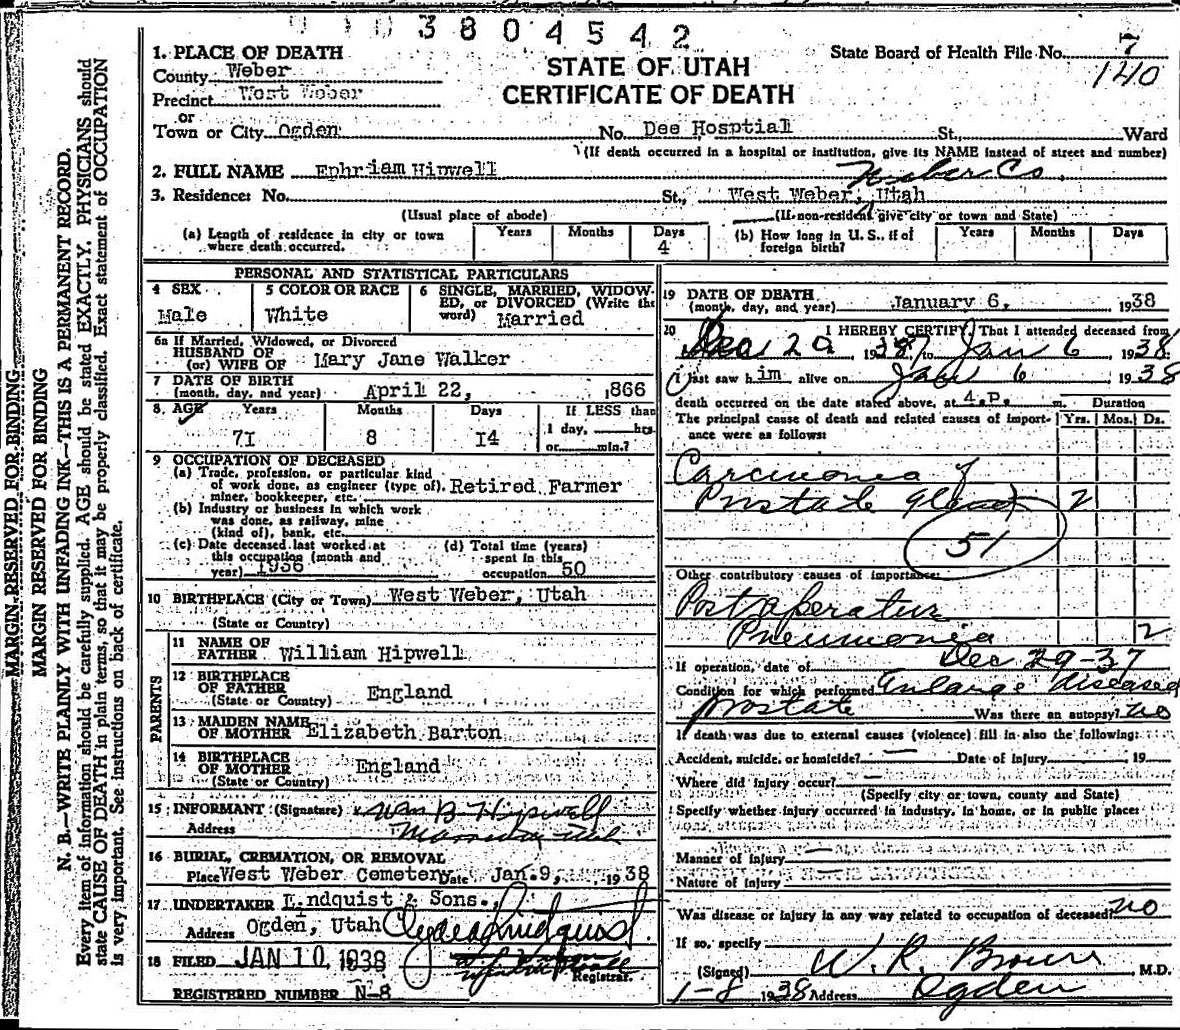 3804542
1. PLACE OF DEATH
County Weber
Precinct West Weber
or
Town or City Ogden No. Dee Hosptial St. Ward
STATE OF UTAH
CERTIFICATE OF DEATH
State Board of Health File No. 7
140
(If death occurred in a hospital or institution, give its NAME instead of street and number)
2. FULL NAME Ephriam Hipwell
Weber Co.
3. Residence: No. St., West Weber, Utah
(Usual place of abode) (If non-resident give city or town and State)
(a) Length of residence in city or town where death occurred. Years Months Days 4
(b) How long in U. S., if of foreign birth? Years Months Days
PERSONAL AND STATISTICAL PARTICULARS
4 SEX Male
5 COLOR OR RACE White
6 SINGLE, MARRIED, WIDOWED, or DIVORCED (Write the word) Married
6a If Married, Widowed, or Divorced
HUSBAND OF
(or) WIFE OF Mary Jane Walker
7 DATE OF BIRTH
(month, day, and year) April 22, ,866
8. AGE Years Months Days If LESS than
71 8 14 1 day, hrs.
or min.?
9 OCCUPATION OF DECEASED
(a) Trade, profession, or particular kind
of work done, as engineer (type of), Retired Farmer
miner, bookkeeper, etc.
(b) Industry or business in which work
was done, as railway, mine
(kind of), bank, etc.
(c) Date deceased last worked at
this occupation (month and
year) 1936
(d) Total time (years)
spent in this
occupation 50
10 BIRTHPLACE (City or Town) West Weber, Utah
(State or Country)
PARENTS
11 NAME OF
FATHER William Hipwell
12 BIRTHPLACE
OF FATHER England
(State or Country)
13 MAIDEN NAME
OF MOTHER Elizabeth Barton
14 BIRTHPLACE
OF MOTHER England
(State or Country)
15 INFORMANT (Signature) Wm B Hipwell
Address
16 BURIAL, CREMATION, OR REMOVAL
Place West Weber Cemetery Date Jan. 9, 1938
17 UNDERTAKER Lindquist & Sons.,
Address Ogden, Utah Clyde Lindquist
18 FILED JAN 10 1938
Registrar.
REGISTERED NUMBER N-8
19 DATE OF DEATH
(month, day, and year) January 6, 1938
20 I HEREBY CERTIFY, That I attended deceased from
Dec 29, 1937, to Jan 6 1938
I last saw him alive on Jan 6 1938
death occurred on the date stated above, at 4.P. m. Duration
The principal cause of death and related causes of importance were as follows: Yrs. Mos. Ds.
Carcinoma of
Prostate Gland 2
51
Other contributory causes of importance:
Post operative
Pneumonia 2
If operation, date of Dec 29-37
Condition for which performed Enlarge diseased
prostate Was there an autopsy? no
If death was due to external causes (violence) fill in also the following:
Accident, suicide, or homicide? Date of Injury 19
Where did injury occur?
(Specify city or town, county and State)
Specify whether injury occurred in industry, in home, or in public place:
Manner of injury
Nature of Injury
Was disease or injury in any way related to occupation of deceased? no
If so, specify
(Signed) W. R. Brown M.D.
1-8 1938 Address Ogden
MARGIN RESERVED FOR BINDING
MARGIN RESERVED FOR BINDING
N. B.—WRITE PLAINLY WITH UNFADING INK—THIS IS A PERMANENT RECORD.
Every item of information should be carefully supplied. AGE should be stated EXACTLY. PHYSICIANS should
state CAUSE OF DEATH in plain terms, so that it may be properly classified. Exact statement of OCCUPATION
is very important. See instructions on back of certificate.